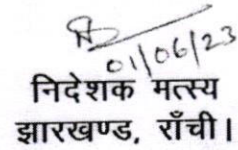 01/06/23
निदेशक मत्स्य
झारखण्ड, राँची।